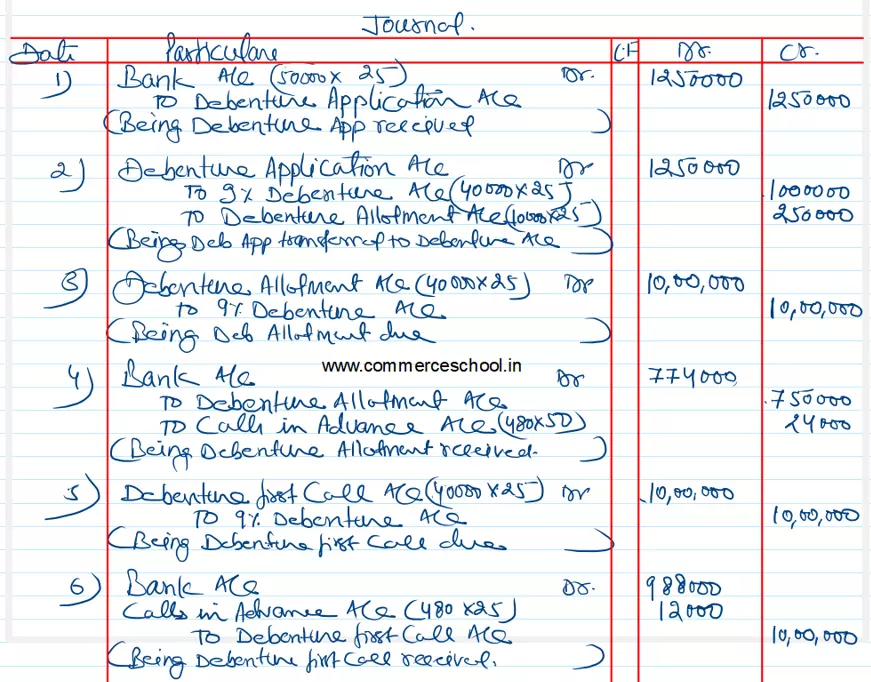 Journal.
Date Particulars LF Dr. Cr.
1) Bank A/c (50000 x 25) Dr. 1250000
To Debenture Application A/c 1250000
(Being Debenture App received)
2) Debenture Application A/c Dr 1250000
To 9% Debenture A/c (40000x25) 1000000
To Debenture Allotment A/c (10000x25) 250000
(Being Deb App transferred to Debenture A/c)
3) Debenture Allotment A/c (40000x25) Dr 10,00,000
To 9% Debenture A/c 10,00,000
(Being Deb Allotment due)
www.commerceschool.in
4) Bank A/c Dr 774000
To Debenture Allotment A/c 750000
To Calls in Advance A/c (480x50) 24000
(Being Debenture Allotment received.)
5) Debenture first Call A/c (40000 x 25) Dr 10,00,000
To 9% Debenture A/c 10,00,000
(Being Debenture first Call due)
6) Bank A/c Dr. 988000
Calls in Advance A/c (480 x 25) 12000
To Debenture first Call A/c 10,00,000
(Being Debenture first Call received.)